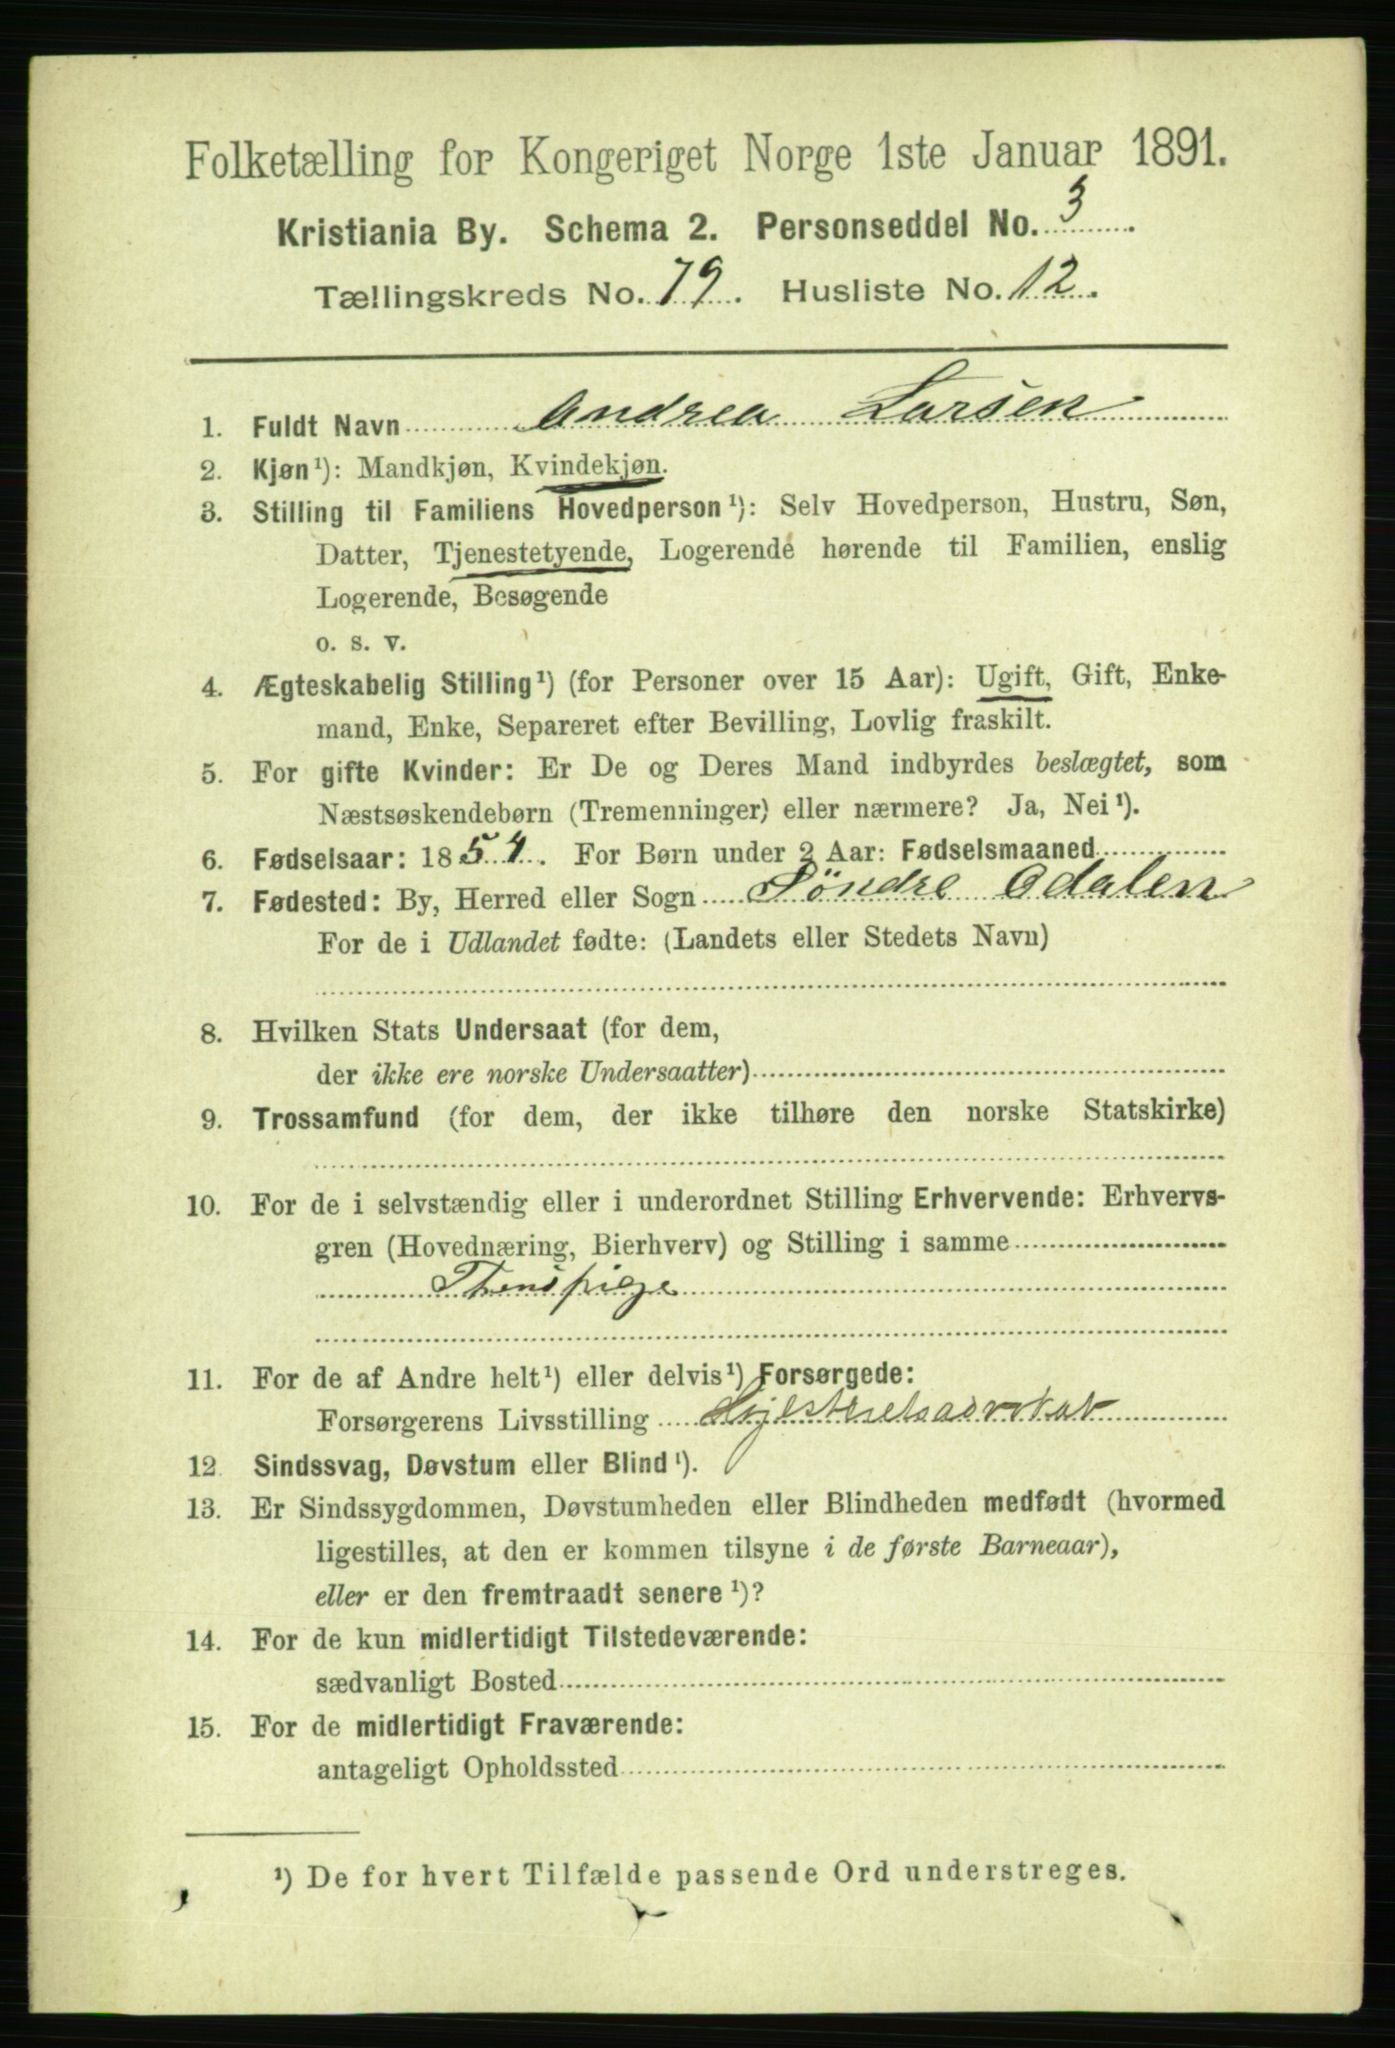 Folketælling for Kongeriget Norge 1ste Januar 1891.
Kristiania By. Schema 2. Personseddel No. 3.
Tællingskreds No. 79. Husliste No. 12.
1. Fuldt Navn Andrea Larsen
2. Kjøn¹): Mandkjøn, Kvindekjøn.
3. Stilling til Familiens Hovedperson¹): Selv Hovedperson, Hustru, Søn,
Datter, Tjenestetyende, Logerende hørende til Familien, enslig
Logerende, Besøgende
o. s. v.
4. Ægteskabelig Stilling¹) (for Personer over 15 Aar): Ugift, Gift, Enke-
mand, Enke, Separeret efter Bevilling, Lovlig fraskilt.
5. For gifte Kvinder: Er De og Deres Mand indbyrdes beslægtet, som
Næstsøskendebørn (Tremenninger) eller nærmere? Ja, Nei¹).
6. Fødselsaar: 1854. For Børn under 2 Aar: Fødselsmaaned
7. Fødested: By, Herred eller Sogn Söndre Odalen
For de i Udlandet fødte: (Landets eller Stedets Navn)
8. Hvilken Stats Undersaat (for dem,
der ikke ere norske Undersaatter)
9. Trossamfund (for dem, der ikke tilhøre den norske Statskirke)
10. For de i selvstændig eller i underordnet Stilling Erhvervende: Erhvervs-
gren (Hovednæring, Bierhverv) og Stilling i samme
11. For de af Andre helt¹) eller delvis¹) Forsørgede:
Forsørgerens Livsstilling
12. Sindssvag, Døvstum eller Blind¹).
13. Er Sindssygdommen, Døvstumheden eller Blindheden medfødt (hvormed
ligestilles, at den er kommen tilsyne i de første Barneaar),
eller er den fremtraadt senere¹)?
14. For de kun midlertidigt Tilstedeværende:
sædvanligt Bosted
15. For de midlertidigt Fraværende:
antageligt Opholdssted
¹) De for hvert Tilfælde passende Ord understreges.